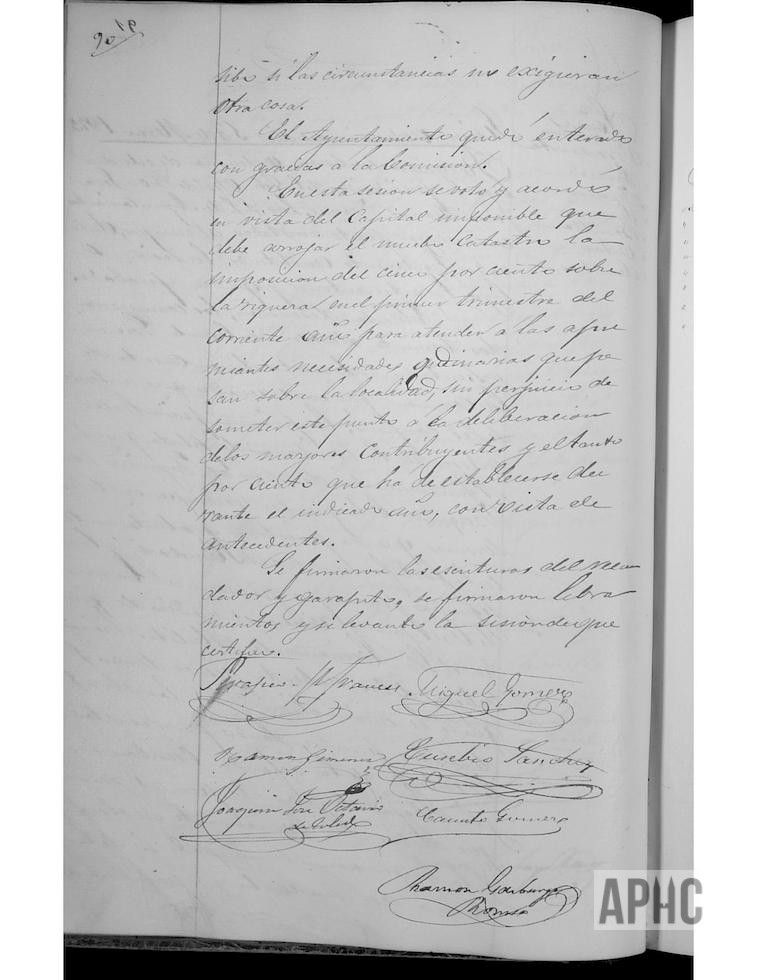 sibe si las circunstancias no exigieran
otra cosa.
El Ayuntamiento quedó enterado
con gracias a la Comisión.
En esta sesion se votó y acordó
en vista del Capital imponible que
debe arrojar el nuebo Catastro la
imposicion del cinco por ciento sobre
la riqueza en el primer trimestre del
corriente año para atender á las apre
miantes necesidades ordinarias que pe
san sobre la localidad, sin perjuicio de
someter este punto á la deliberacion
delos mayores Contribuyentes y el tanto
por ciento que há de establecerse du
rante el indicado año, con vista de
antecedentes.
Se firmaron las escrituras del recau
dador y garapito, se firmaron libra
mientos y se levanto la sesion de que
certifico.
Miguel Gomez
Ramon Gimenez Eusebio Sanchez
Joaquin José Octavio
de Toledo
Canuto Gomez
Ramon
APHC